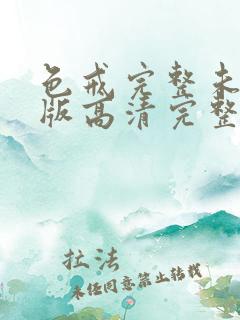 色戒完整未
版高清完整
拉法
未经同意禁止转载